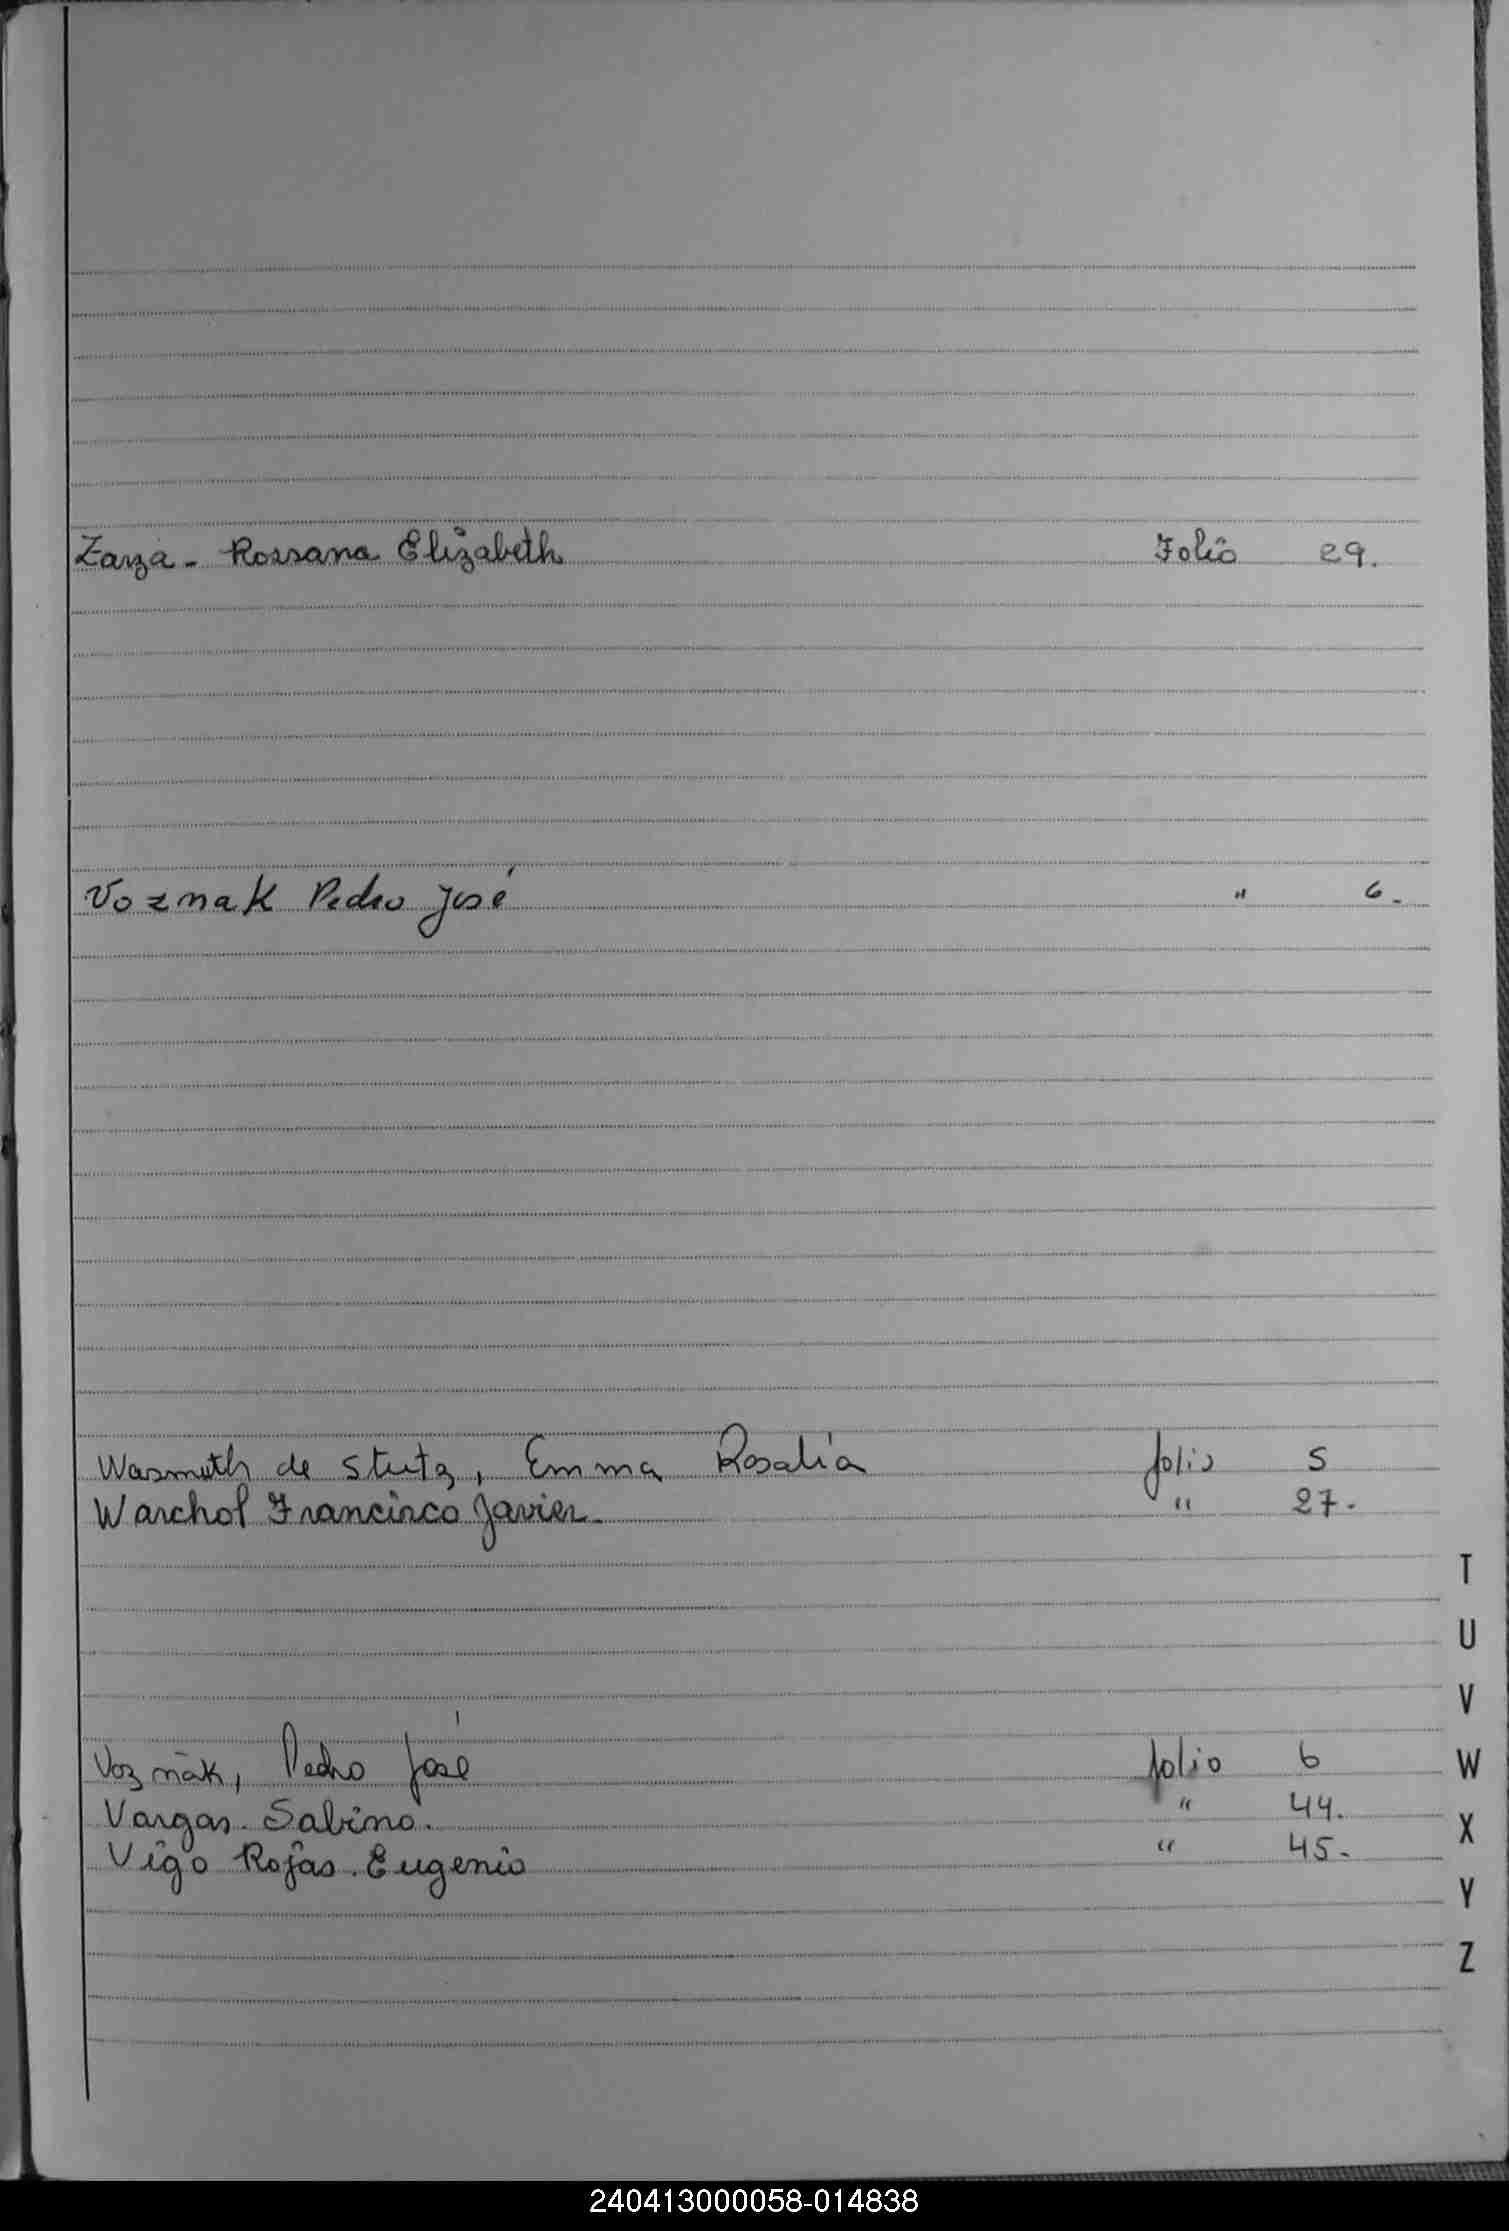 Zarza - Rossana Elizabeth Folio 29.
Voznak Pedro José " 6.
Wasmuth de Stutz, Emma Rosalía folio 5
Warchol Francisco Javier. " 27.
T
U
V
Voznak, Pedro José folio 6
W
Vargas. Sabino. " 44.
X
Vigo Rojas. Eugenio " 45.
Y
Z
240413000058-014838